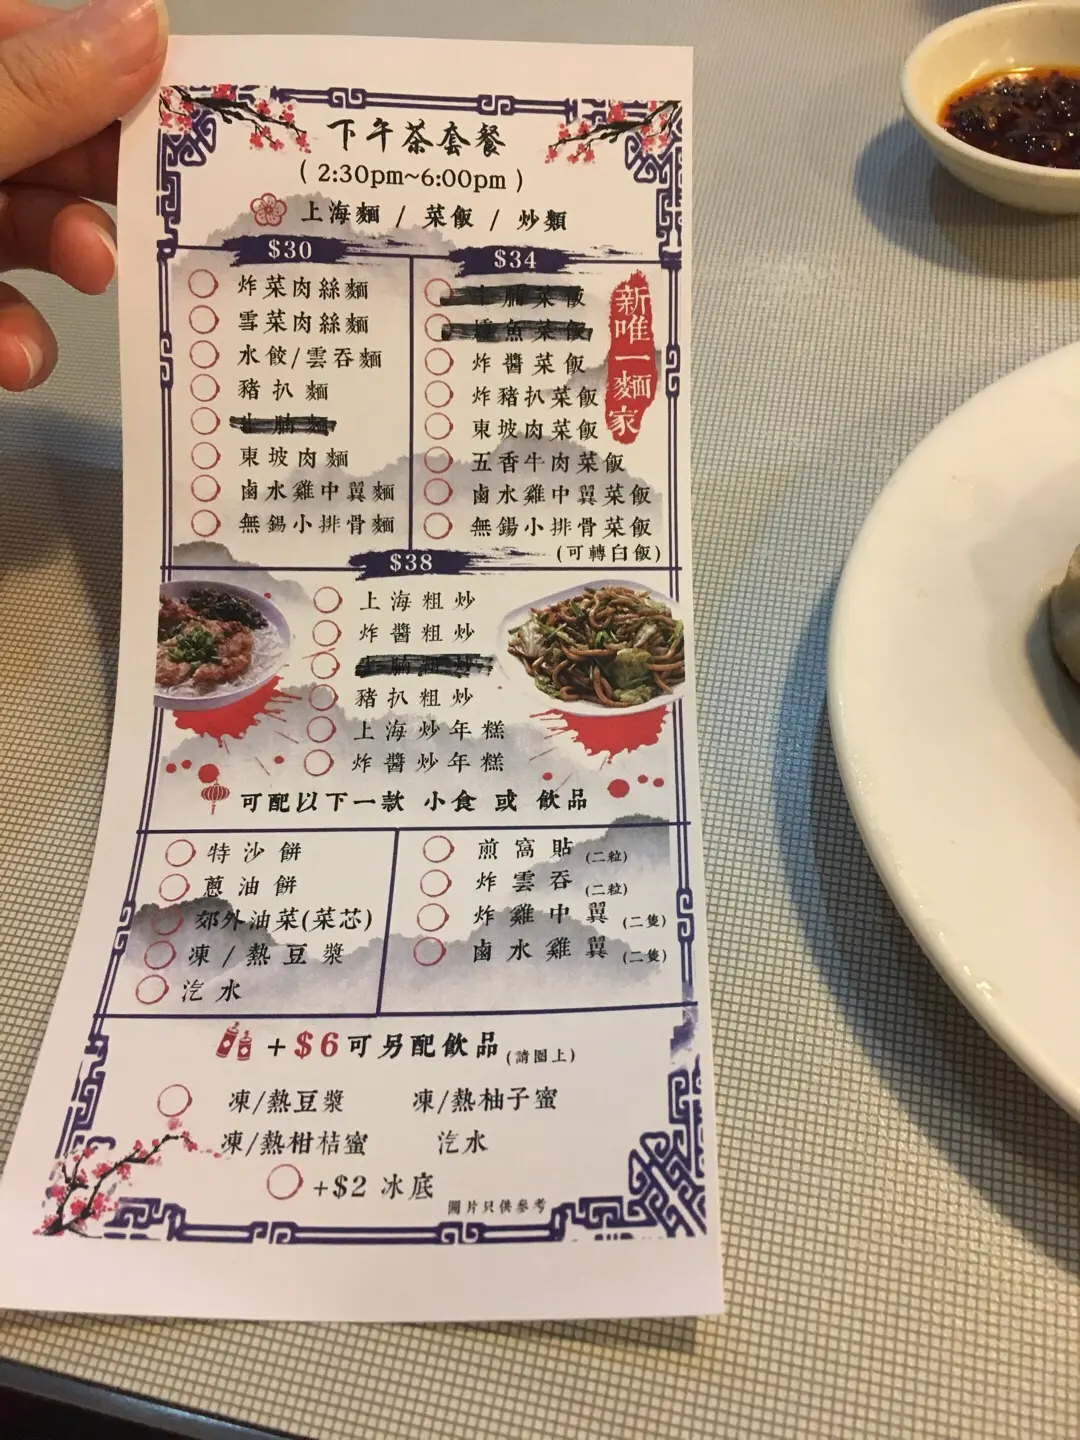 下午茶套餐
( 2:30pm~6:00pm )
上海麵 / 菜飯 / 炒類
$30
炸菜肉絲麵
雪菜肉絲麵
水餃/雲吞麵
豬扒麵
腩麵
東坡肉麵
鹵水雞中翼麵
無錫小排骨麵
$34
腩菜飯
魚菜飯
炸醬菜飯
炸豬扒菜飯
東坡肉菜飯
五香牛肉菜飯
鹵水雞中翼菜飯
無錫小排骨菜飯
(可轉白飯)
新唯一麵家
$38
上海粗炒
炸醬粗炒
腩
豬扒粗炒
上海炒年糕
炸醬炒年糕
可配以下一款 小食 或 飲品
特沙餅
蔥油餅
郊外油菜(菜芯)
凍/熱豆漿
汽水
煎窩貼 (二粒)
炸雲吞 (二粒)
炸雞中翼 (二隻)
鹵水雞翼 (二隻)
+$6可另配飲品 (請圈上)
凍/熱豆漿 凍/熱柚子蜜
凍/熱柑桔蜜 汽水
+$2 冰底
圖片只供參考